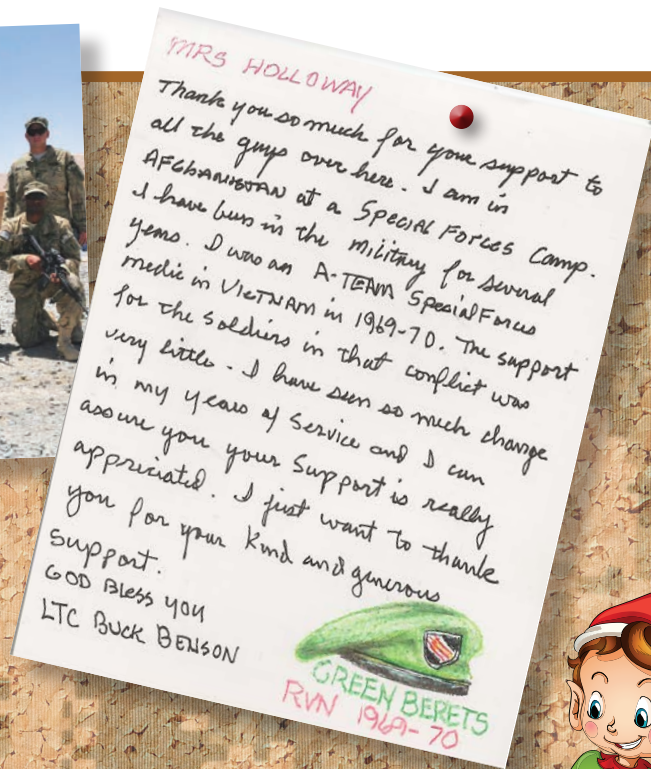 MRS HOLLOWAY
Thank you so much for your support to
all the guys over here. I am in
AFGhANISTAN at a Special Forces Camp.
I have been in the military for several
years. I was an A-TEAM Special Forces
medic in VIETNAM in 1969-70. The support
for the Soldiers in that conflict was
very little. I have seen so much change
in my years of Service and I can
assure you your Support is really
appreciated. I just want to thank
you for your Kind and generous
Support.
GOD Bless you
LTC BUCK BENSON
GREEN BERETS
RVN 1969-70